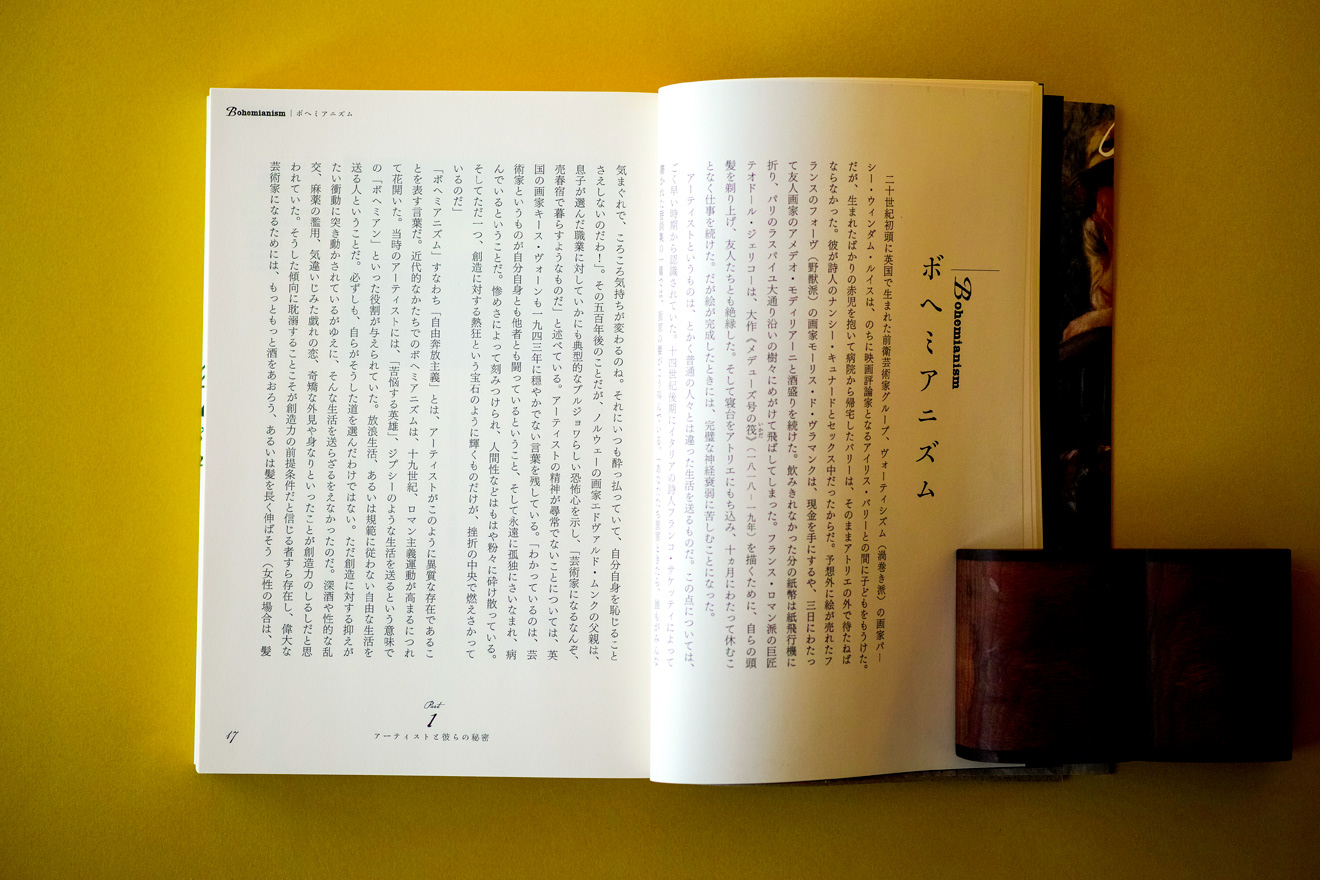 Bohemianism
ボヘミアニズム
二十世紀初頭に英国で生まれた前衛芸術家グループ、ヴォーティシズム（渦巻き派）の画家パー
シー・ウィンダム・ルイスは、のちに映画評論家となるアイリス・バリーとの間に子どもをもうけた。
だが、生まれたばかりの赤児を抱いて病院から帰宅したバリーは、そのままアトリエの外で待たねば
ならなかった。彼が詩人のナンシー・キュナードとセックス中だったからだ。予想外に絵が売れたフ
ランスのフォーヴ（野獣派）の画家モーリス・ド・ヴラマンクは、現金を手にするや、三日にわたっ
て友人画家のアメデオ・モディリアーニと酒盛りを続けた。飲みきれなかった分の紙幣は紙飛行機に
折り、パリのラスパイユ大通り沿いの樹々にめがけて飛ばしてしまった。フランス・ロマン派の巨匠
テオドール・ジェリコーは、大作《メデューズ号の筏》（一八一八－一九年）を描くために、自らの頭
いかだ
髪を剃り上げ、友人たちとも絶縁した。そして寝台をアトリエにもち込み、十ヵ月にわたって休むこ
となく仕事を続けた。だが絵が完成したときには、完璧な神経衰弱に苦しむことになった。
アーティストというものは、とかく普通の人々とは違った生活を送るものだ。この点については、
ごく早い時期から認識されていた。十四世紀後期にイタリアの詩人フランコ・サケッティによって
Bohemianism｜ボヘミアニズム
気まぐれで、ころころ気持ちが変わるのね。それにいつも酔っ払っていて、自分自身を恥じること
さえしないのだわ！」。その五百年後のことだが、ノルウェーの画家エドヴァルド・ムンクの父親は、
息子が選んだ職業に対していかにも典型的なブルジョワらしい恐怖心を示し、「芸術家になるなんぞ、
売春宿で暮らすようなものだ」と述べている。アーティストの精神が尋常でないことについては、英
国の画家キース・ヴォーンも一九四三年に穏やかでない言葉を残している。「わかっているのは、芸
術家というものが自分自身とも他者とも闘っているということ、そして永遠に孤独にさいなまれ、病
んでいるということだ。惨めさによって刻みつけられ、人間性などはもはや粉々に砕け散っている。
そしてただ一つ、創造に対する熱狂という宝石のように輝くものだけが、挫折の中央で燃えさかって
いるのだ」
「ボヘミアニズム」すなわち「自由奔放主義」とは、アーティストがこのように異質な存在であるこ
とを表す言葉だ。近代的なかたちでのボヘミアニズムは、十九世紀、ロマン主義運動が高まるにつれ
て花開いた。当時のアーティストには、「苦悩する英雄」、ジプシーのような生活を送るという意味で
の「ボヘミアン」といった役割が与えられていた。放浪生活、あるいは規範に従わない自由な生活を
送る人ということだ。必ずしも、自らがそうした道を選んだわけではない。ただ創造に対する抑えが
たい衝動に突き動かされているがゆえに、そんな生活を送らざるをえなかったのだ。深酒や性的な乱
交、麻薬の濫用、気違いじみた戯れの恋、奇矯な外見や身なりといったことが創造力のしるしだと思
われていた。そうした傾向に耽溺することこそが創造力の前提条件だと信じる者すら存在し、偉大な
芸術家になるためには、もっともっと酒をあおろう、あるいは髪を長く伸ばそう（女性の場合は、髪
Part
1
アーティストと彼らの秘密
17